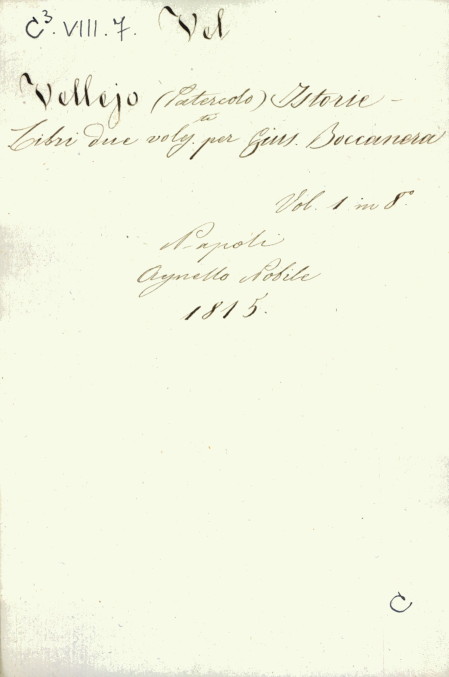 C³. VIII. 7. Vel
Vellejo (Patercolo) Istorie -
Libri due volg.ti per Gius. Boccanera
Vol. 1 in 8°
Napoli
Agnello Nobile
1815.
C